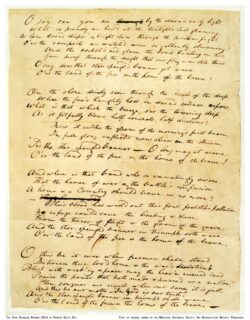 O say can you see by the dawn's early light
What so proudly we hail'd at the twilight's last gleaming
Whose broad stripes & bright stars through the perilous fight
O'er the ramparts we watch'd, were so gallantly streaming?
And the rocket's red glare, the bomb bursting in air
Gave proof through the night that our flag was still there
O say does that star spangled banner yet wave
O'er the land of the free & the home of the brave?
On the shore dimly seen through the mists of the deep
Where the foe's haughty host in dread silence reposes
What is that which the breeze, o'er the towering steep
As it fitfully blows, half conceals, half discloses?
Now it catches the gleam of the morning's first beam
In full glory reflected now shines in the stream
'Tis the star-spangled banner — O long may it wave
O'er the land of the free & the home of the brave!
And where is that band who so vauntingly swore
That the havoc of war & the battle's confusion
A home & a Country should leave us no more?
Their blood has wash'd out their foul footsteps pollution
No refuge could save the hireling & slave
From the terror of flight or the gloom of the grave
And the star-spangled banner in triumph doth wave
O'er the land of the free & the home of the brave
O thus be it ever when freemen shall stand
Between their lov'd home & the war's desolation!
Blest with vict'ry & peace may the heav'n rescued land
Praise the power that hath made & preserv'd us a nation!
Then conquer we must when our cause it is just
And this be our motto — In God is our trust
And the star-spangled banner in triumph shall wave
O'er the land of the free & the home of the brave
The Star Spangled Banner 1814 by Francis Scott Key
Copy of original owned by the Maryland Historical Society. No Reproduction Without Permission